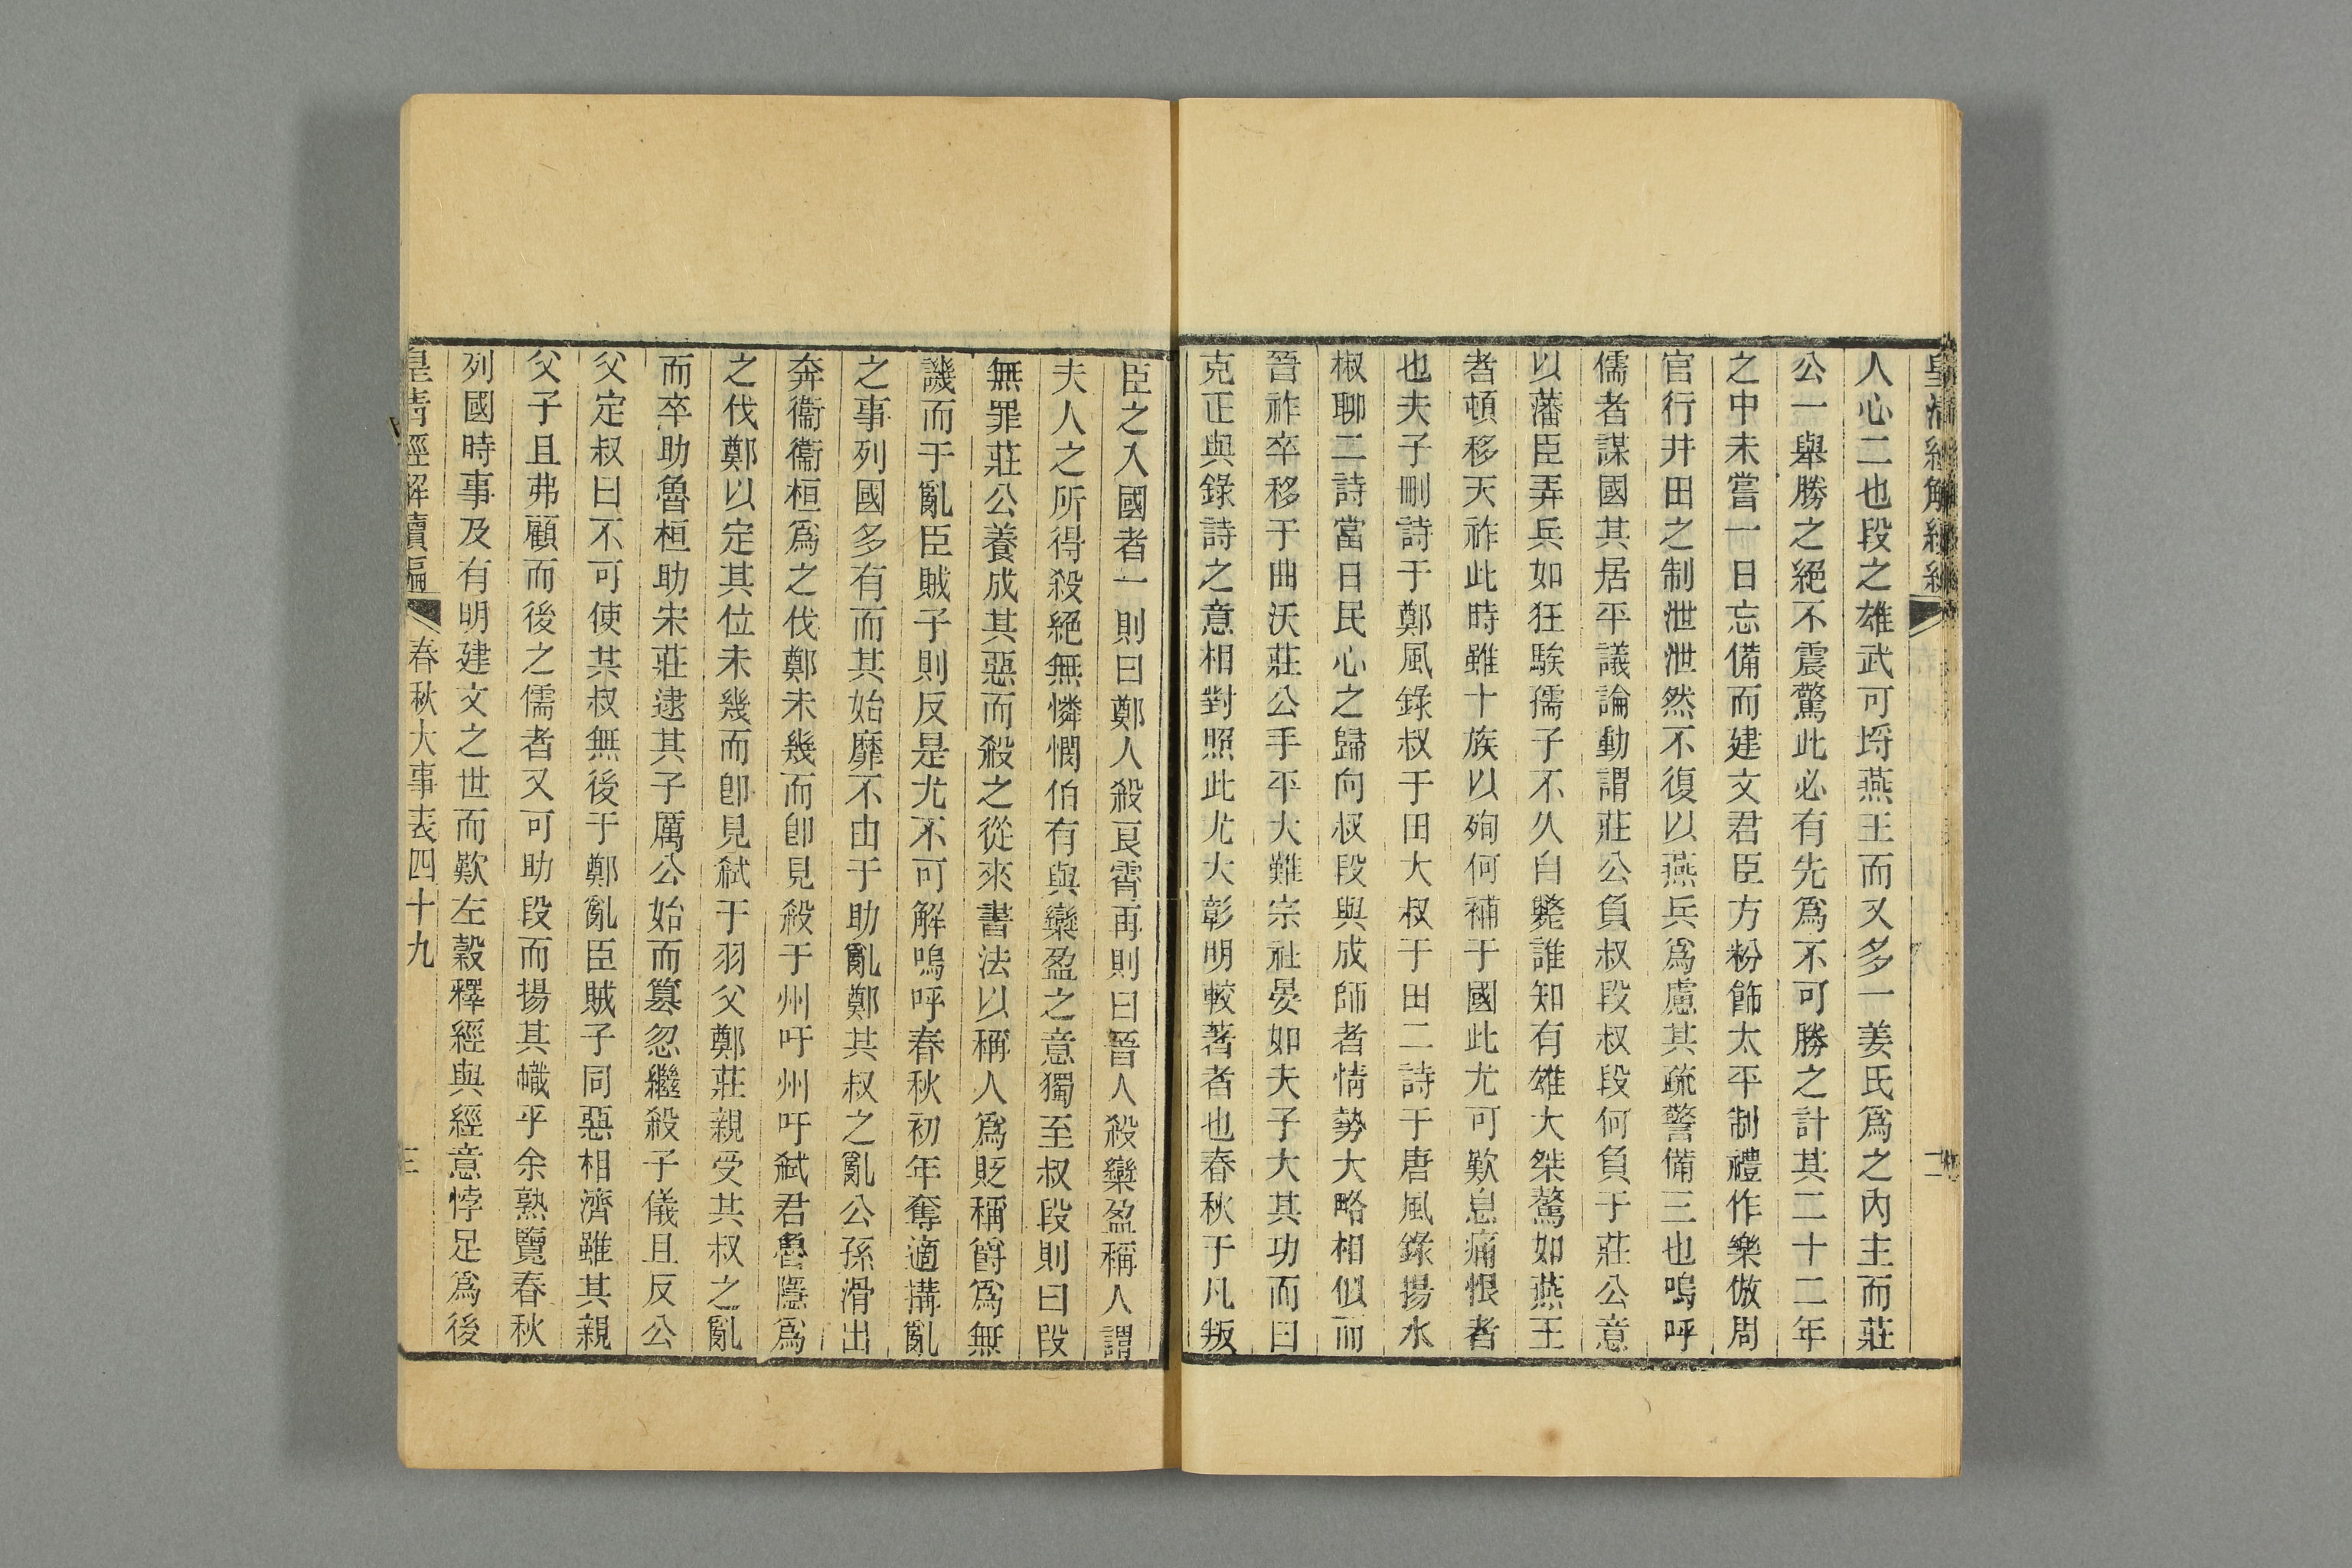 皇清經解續編 二
人心二也段之雄武可埒燕王而又多一姜氏爲之內主而莊
公一舉勝之絕不震驚此必有先爲不可勝之計其二十二年
之中未嘗一日忘備而建文君臣方粉飾太平制禮作樂倣周
官行井田之制泄泄然不復以燕兵爲慮其疏警備三也嗚呼
儒者謀國其居平議論動謂莊公負叔段叔段何負于莊公意
以藩臣弄兵如狂騃孺子不久自斃誰知有雄大桀驁如燕王
者頓移天祚此時雖十族以殉何補于國此尤可歎息痛恨者
也夫子刪詩于鄭風錄叔于田大叔于田二詩于唐風錄揚水
椒聊二詩當日民心之歸向叔段與成師者情勢大略相似而
晉祚卒移于曲沃莊公手平大難宗社晏如夫子大其功而曰
克正與錄詩之意相對照此尤大彰明較著者也春秋于凡叛
臣之入國者一則曰鄭人殺良霄再則曰晉人殺欒盈稱人謂
夫人之所得殺絕無憐憫伯有與欒盈之意獨至叔段則曰段
無罪莊公養成其惡而殺之從來書法以稱人爲貶稱爵爲無
譏而于亂臣賊子則反是尤不可解嗚呼春秋初年奪適搆亂
之事列國多有而其始靡不由于助亂鄭其叔之亂公孫滑出
奔衞衞桓爲之伐鄭未幾而卽見殺于州吁州吁弒君魯隱爲
之伐鄭以定其位未幾而卽見弒于羽父鄭莊親受其叔之亂
而卒助魯桓助宋莊逮其子厲公始而篡忽繼殺子儀且反公
父定叔曰不可使其叔無後于鄭亂臣賊子同惡相濟雖其親
父子且弗顧而後之儒者又可助段而揚其幟乎余熟覽春秋
列國時事及有明建文之世而歎左穀釋經與經意悖足爲後
皇清經解續編 春秋大事表四十九 三